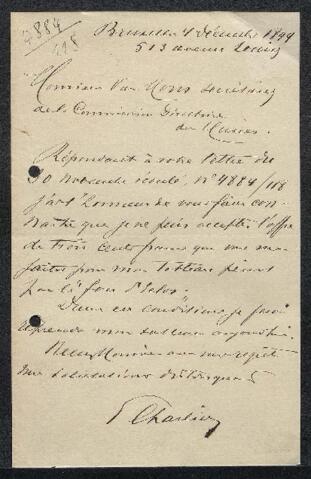 4884
118
Bruxelles 4 décembre 1899
513 avenue Louise
Monsieur Van Mons secrétaire
de la Commission Directrice
des Musées.
Répondant à votre lettre du
30 novembre écoulé, n° 4884/118
j'ai l'honneur de vous faire con-
naître que je ne puis accepter l'offre
de trois cents francs que vous me
faites pour mon tableau
par le
Dans ces conditions je ferai
reprendre mon tableau aujourd'hui.
Recevez Monsieur avec mes respects
mes salutations distinguées
Charlier